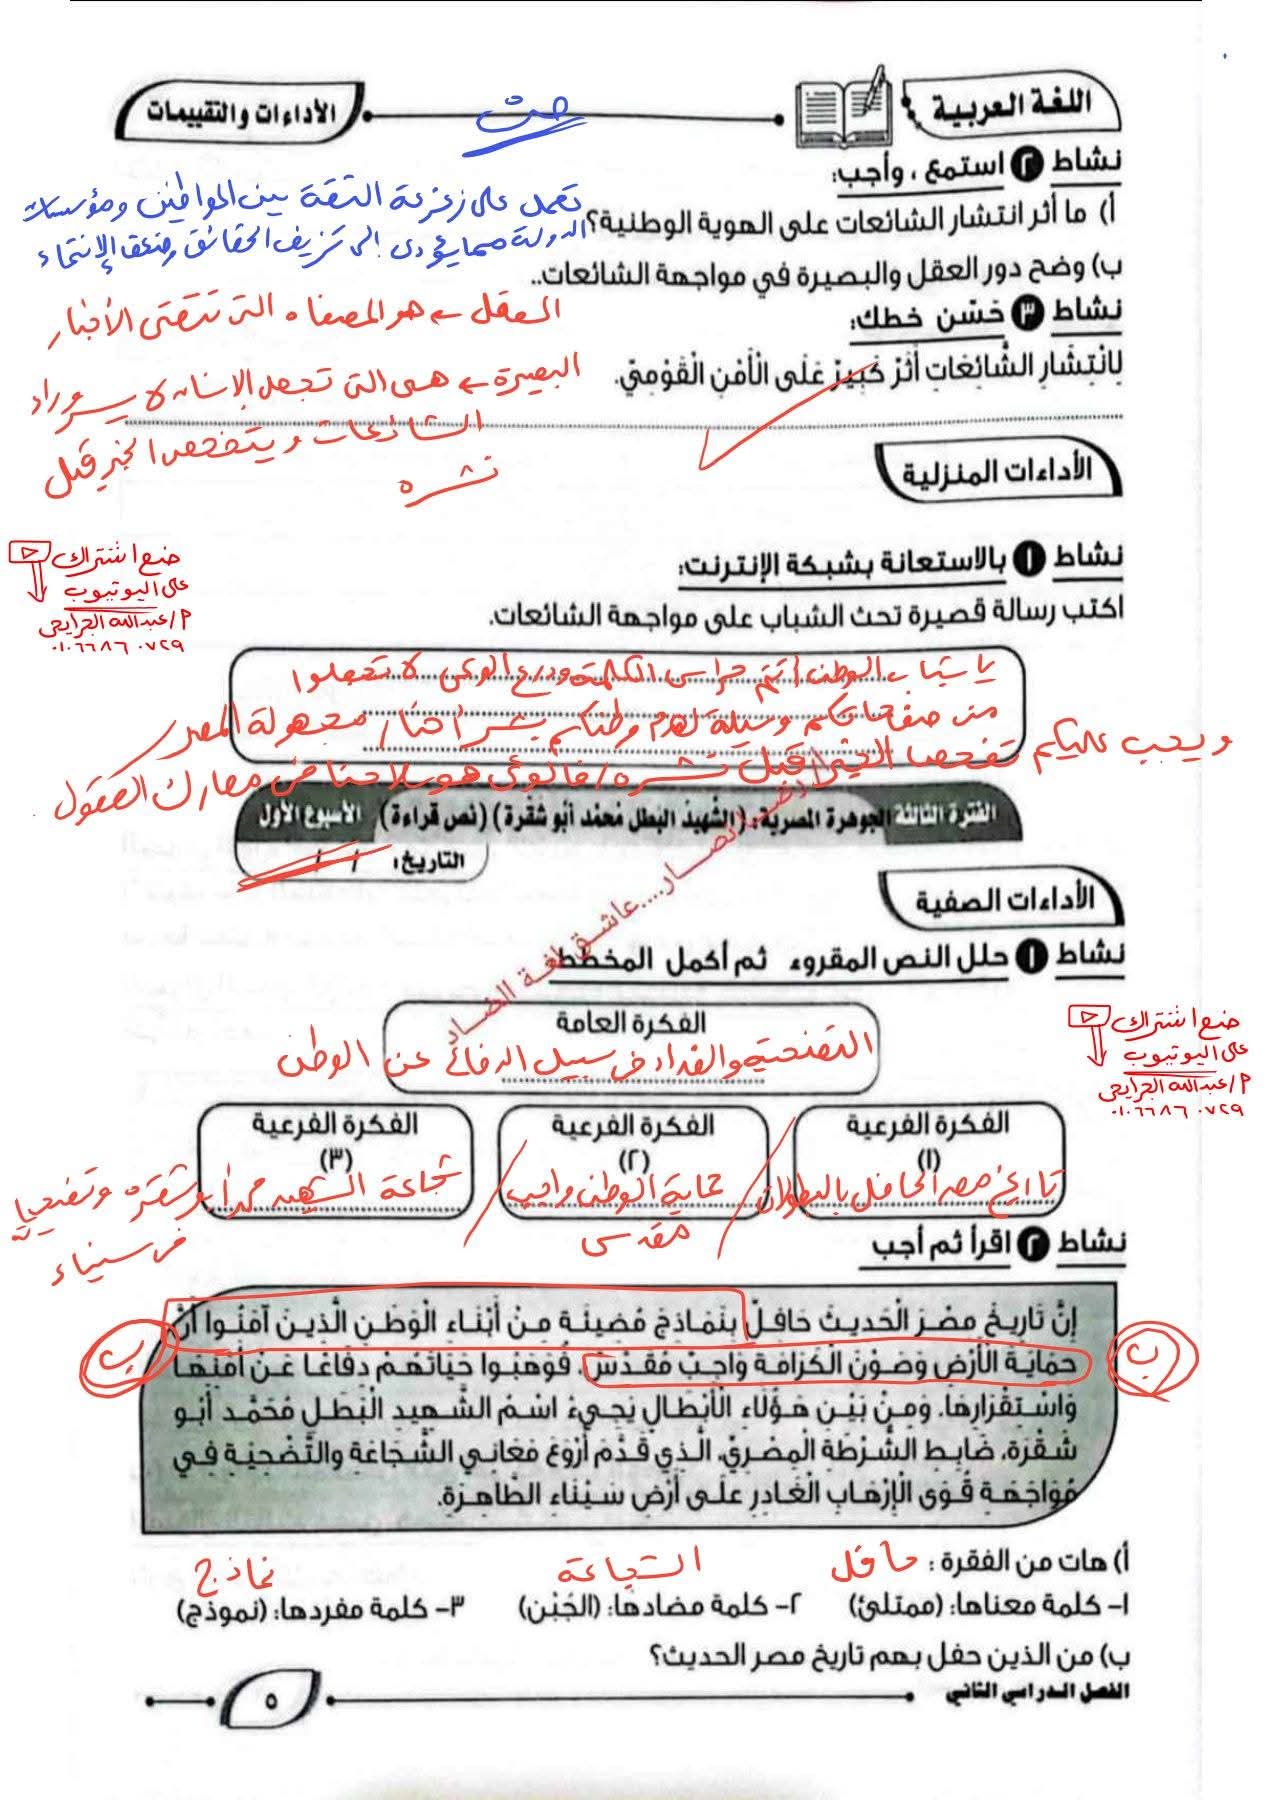 اللغة العربية
الأداءات والتقييمات
نشاط ٢ استمع ، وأجب:
أ) ما أثر انتشار الشائعات على الهوية الوطنية؟
تعمل على زعزعة الثقة بين المواطنين ومؤسسات
الدولة مما يؤدى إلى تزييف الحقائق وضعف الإنتماء
ب) وضح دور العقل والبصيرة في مواجهة الشائعات..
العقل ← هو المصفاه التى تنقى الأخبار
نشاط ٣ حَسّن خطك:
البصيرة ← هى التى تجعل الإنسان لا يسير وراء
لِانْتِشَارِ الشَّائِعَاتِ أَثَرٌ كَبِيرٌ عَلَى الْأَمْنِ الْقَوْمِيِّ.
الشائعات ويتفحص الخبر قبل
نشره
الأداءات المنزلية
نشاط ١ بالاستعانة بشبكة الإنترنت:
اكتب رسالة قصيرة تحث الشباب على مواجهة الشائعات.
ضع اشتراك
على اليوتيوب
م/عبدالله الجرايحى
٠١٠٦٦٨٦٠٧٢٩
يا شباب الوطن أنتم حراس الكلمة ودرع الوعى لا تجعلوا
من صفحاتكم وسيلة لهدم وطنكم بنشر أخبار مجهولة المصدر
ويجب عليكم تفحص الخبر قبل نشره، فالوعى هو سلاحنا فى معارك العقول.
الفترة الثالثة الجوهرة المصرية: (الشهيد البطل محمد أبو شقرة) (نص قراءة) الأسبوع الأول
التاريخ: / /
الأداءات الصفية
نشاط ١ حلل النص المقروء ثم أكمل المخطط
عاشق لغة الضاد
الفكرة العامة
التضحية والفداء فى سبيل الدفاع عن الوطن
ضع اشتراك
على اليوتيوب
م/عبدالله الجرايحى
٠١٠٦٦٨٦٠٧٢٩
الفكرة الفرعية (١)
تاريخ مصر الحافل بالبطولات
الفكرة الفرعية (٢)
حماية الوطن واجب مقدس
الفكرة الفرعية (٣)
شجاعة الشهيد محمد أبو شقره وتضحياته
فى سيناء
نشاط ٢ اقرأ ثم أجب
إِنَّ تَارِيخَ مِصْرَ الْحَدِيثَ حَافِلٌ بِنَمَاذِجَ مُضِيئَةٍ مِنْ أَبْنَاءِ الْوَطَنِ الَّذِينَ آمَنُوا أَنَّ
حِمَايَةَ الْأَرْضِ وَصَوْنَ الْكَرَامَةِ وَاجِبٌ مُقَدَّسٌ، فَوَهَبُوا حَيَاتَهُمْ دِفَاعًا عَنْ أَمْنِهَا
ب
ب
وَاسْتِقْرَارِهَا. وَمِنْ بَيْنِ هَؤُلَاءِ الْأَبْطَالِ يَجِيءُ اسْمُ الشَّهِيدِ الْبَطَلِ مُحَمَّد أَبُو
شُقْرَة، ضَابِطِ الشُّرْطَةِ الْمِصْرِيِّ، الَّذِي قَدَّمَ أَرْوَعَ مَعَانِي الشَّجَاعَةِ وَالتَّضْحِيَةِ فِي
مُوَاجَهَةِ قُوَى الْإِرْهَابِ الْغَادِرِ عَلَى أَرْضِ سَيْنَاءَ الطَّاهِرَةِ.
أ) هات من الفقرة : حافل الشجاعة نماذج
١- كلمة معناها: (ممتلئ) ٢- كلمة مضادها: (الجُبْن) ٣- كلمة مفردها: (نموذج)
ب) من الذين حفل بهم تاريخ مصر الحديث؟
الفصل الدراسي الثاني
٥